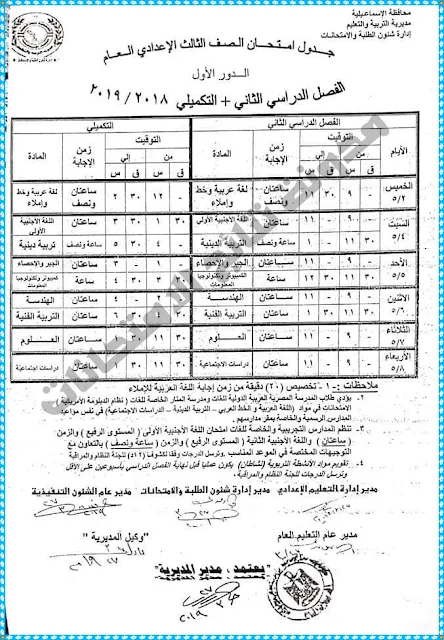 محافظة الإسماعيلية
مديرية التربية والتعليم
إدارة شئون الطلبة والامتحانات
جدول امتحان الصف الثالث الإعدادي العام
الدور الأول
الفصل الدراسي الثاني + التكميلي ٢٠١٨ / ٢٠١٩
الأيام
الفصل الدراسي الثاني
التكميلي
التوقيت
زمن الإجابة
المادة
التوقيت
زمن الإجابة
المادة
من
إلى
من
إلى
ق س ق س ق س ق س
الخميس ٥/٢
٩ ٣٠ ١١ ساعتان ونصف لغة عربية وخط وإملاء
١٢ ٣٠ ٢ ساعتان ونصف لغة عربية وخط وإملاء
السبت ٥/٤
٩ ١١ ساعتان اللغة الأجنبية الأولى
٣٠ ١ ٣٠ ٣ ساعتان اللغة الأجنبية الأولى
٣٠ ١١ ١ ساعة ونصف التربية الدينية
٤ ٣٠ ٥ ساعة ونصف تربية دينية
الأحد ٥/٥
٩ ١١ ساعتان الجبر والإحصاء
١ ٣ ساعتان الجبر والإحصاء
٣٠ ١١ ٣٠ ١٢ ساعة الكمبيوتر وتكنولوجيا المعلومات
٣٠ ٣ ٣٠ ٤ ساعة كمبيوتر وتكنولوجيا المعلومات
الاثنين ٥/٦
٩ ١١ ساعتان الهندسة
ساعتان الهندسة
٣٠ ١١ ساعتان التربية الفنية
ساعتان التربية الفنية
الثلاثاء ٥/٧
٩ ١١ ساعتان العلوم
ساعتان العلوم
الأربعاء ٥/٨
٩ ١١ ساعتان الدراسات الاجتماعية
ساعتان دراسات اجتماعية
ملاحظات :- ١ - تخصيص (٢٠) دقيقة من زمن إجابة اللغة العربية للإملاء
٢. يؤدي طلاب المدرسة المصرية العربية الدولية للغات ومدرسة المنار الخاصة للغات ( نظام الدبلومة الأمريكية )
الامتحانات في مواد ( اللغة العربية و الخط العربي – التربية الدينية – الدراسات الاجتماعية ) في نفس مواعيد
المدارس الرسمية والخاصة بمقر مدارسهم
٣. تنظم المدارس التجريبية والخاصة للغات امتحان اللغة الأجنبية الأولى (المستوى الرفيع) والزمن
( ساعتان ) واللغة الأجنبية الثانية ( المستوى الرفيع ) والزمن ( ساعة ونصف ) بالتعاون مع
التوجيهات المختصة في الموعد المناسب وترسل الدرجات وفقا لكشوف للجنة النظام والمراقبة
٤. تقويم مواد الأنشطة التربوية (نشاطان) يكون عمليا قبل نهاية الفصل الدراسي بأسبوعين على الأقل
وترسل الدرجات للجنة النظام والمراقبة.
مدير إدارة التعليم الإعدادي مدير إدارة شئون الطلبة والامتحانات مدير عام الشئون التنفيذية
مدير عام التعليم العام
" وكيل المديرية "
" يعتمد ، مدير المديرية "